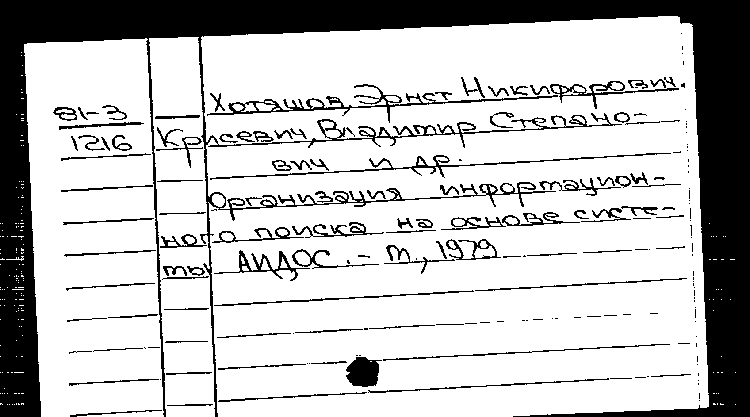 Хотяшов, Эрнст Никифорович.
81-3
1216
Крисевич, Владимир Степано-
вич и др.
Организация информацион-
ного поиска на основе систе-
мы АИДОС. – М., 1979